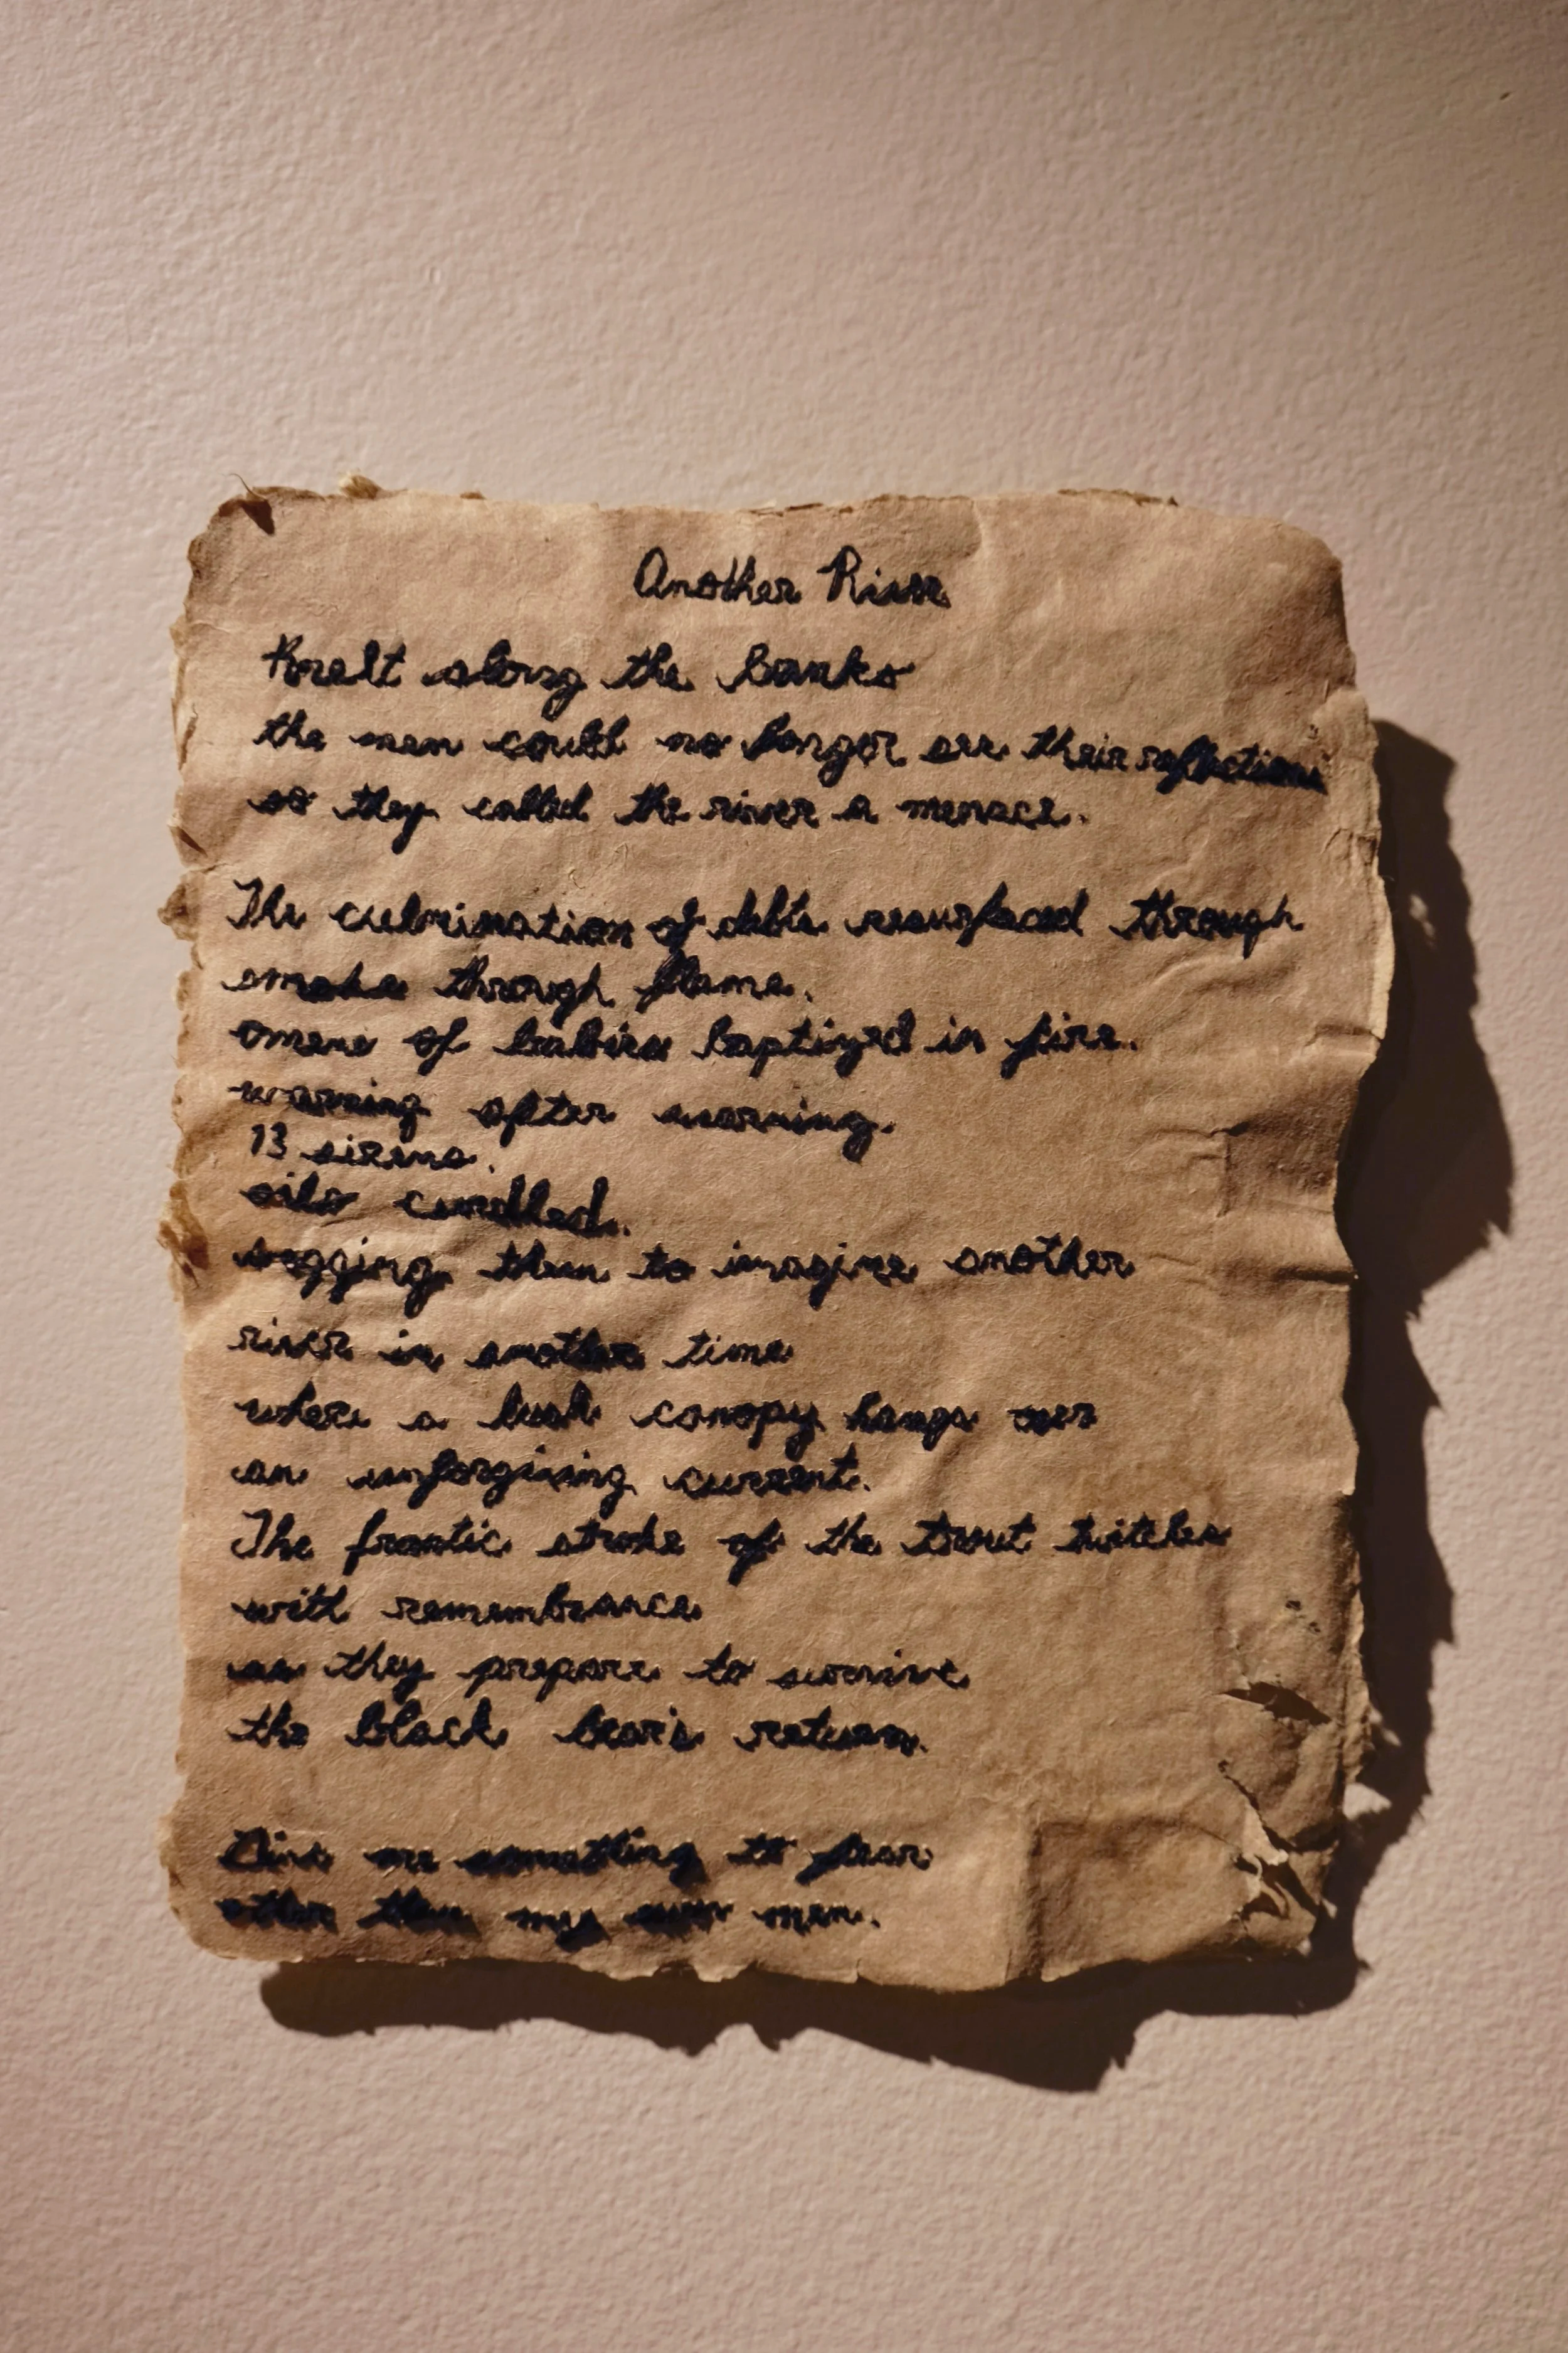 Another River
Knelt along the banks
the men could no longer see their reflections
so they called the river a menace.
The culmination of debts resurfaced through
smoke through flame.
omens of babies baptized in fire.
warning after warning.
13 sirens.
oils curdled.
begging them to imagine another
river in another time
where a lush canopy hangs over
an unforgiving current.
The frantic stroke of the trout twitches
with remembrance
as they prepare to survive
the black bear's return.
Give me something to fear
other than my own men.